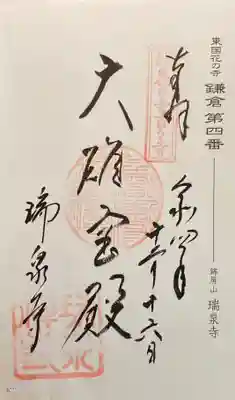 東国花の寺 鎌倉 第四番 錦屏山 瑞泉寺
奉拝
十二月十六日
大雄宝殿
瑞泉寺